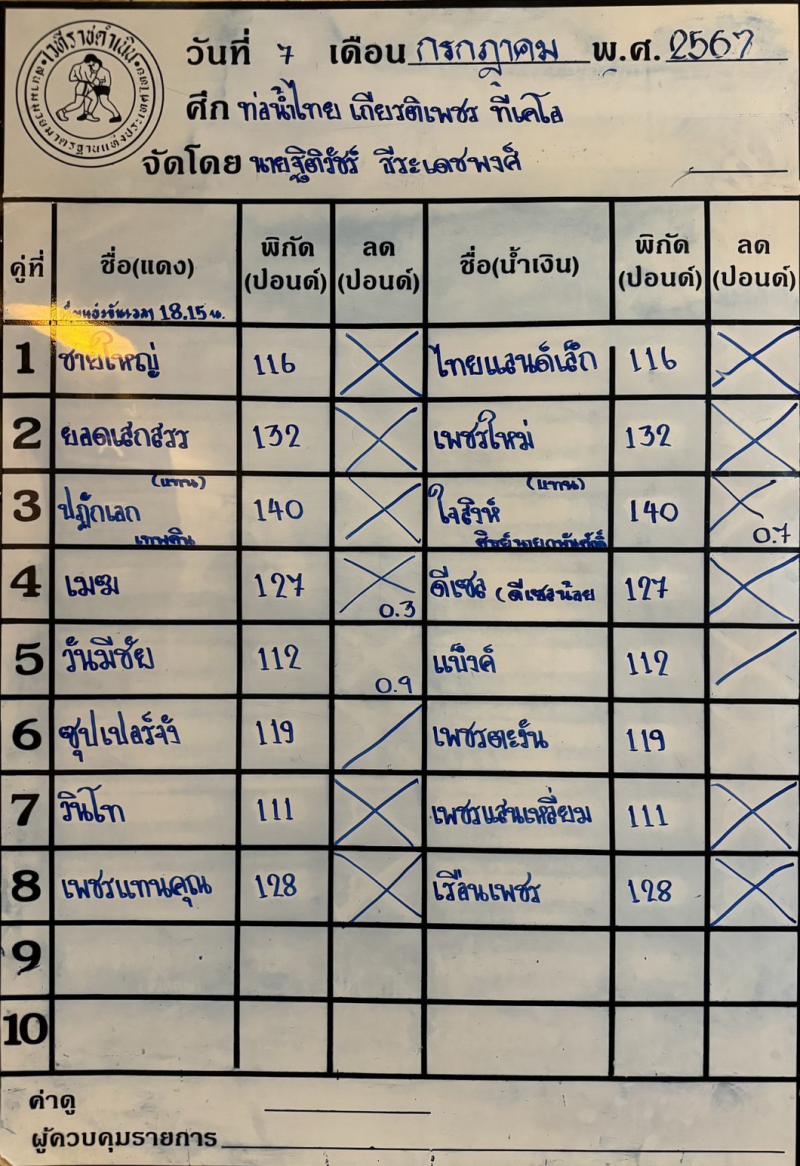 เวทีราชดำเนิน
สนามมวยมาตรฐานแห่งประเทศไทย
วันที่ 7 เดือน กรกฎาคม พ.ศ. 2567
ศึก ท่อน้ำไทย เกียรติเพชร ทีเคโอ
จัดโดย นายฐิติวัชร์ ธีระเดชพงศ์
คู่ที่ ชื่อ(แดง) พิกัด (ปอนด์) ลด (ปอนด์) ชื่อ(น้ำเงิน) พิกัด (ปอนด์) ลด (ปอนด์)
18.15 น.
1 ชายใหญ่ 116 ไทยแลนด์เล็ก 116
2 ยอดเสกสรร 132 เพชรใหม่ 132
(แทน) (แทน)
3 ปฏักเอก 140 ใจสิงห์ 140 0.7
เทพติน
4 เมฆ 127 0.3 ดีเซล (ดีเซลน้อย 127
5 วันมีชัย 112 0.9 แบ๊งค์ 112
6 ซุปเปอร์จัง 119 เพชรตะวัน 119
7 วินโท 111 เพชรแสนเหลี่ยม 111
8 เพชรแทนคุณ 128 เรือนเพชร 128
9
10
ค่าดู
ผู้ควบคุมรายการ